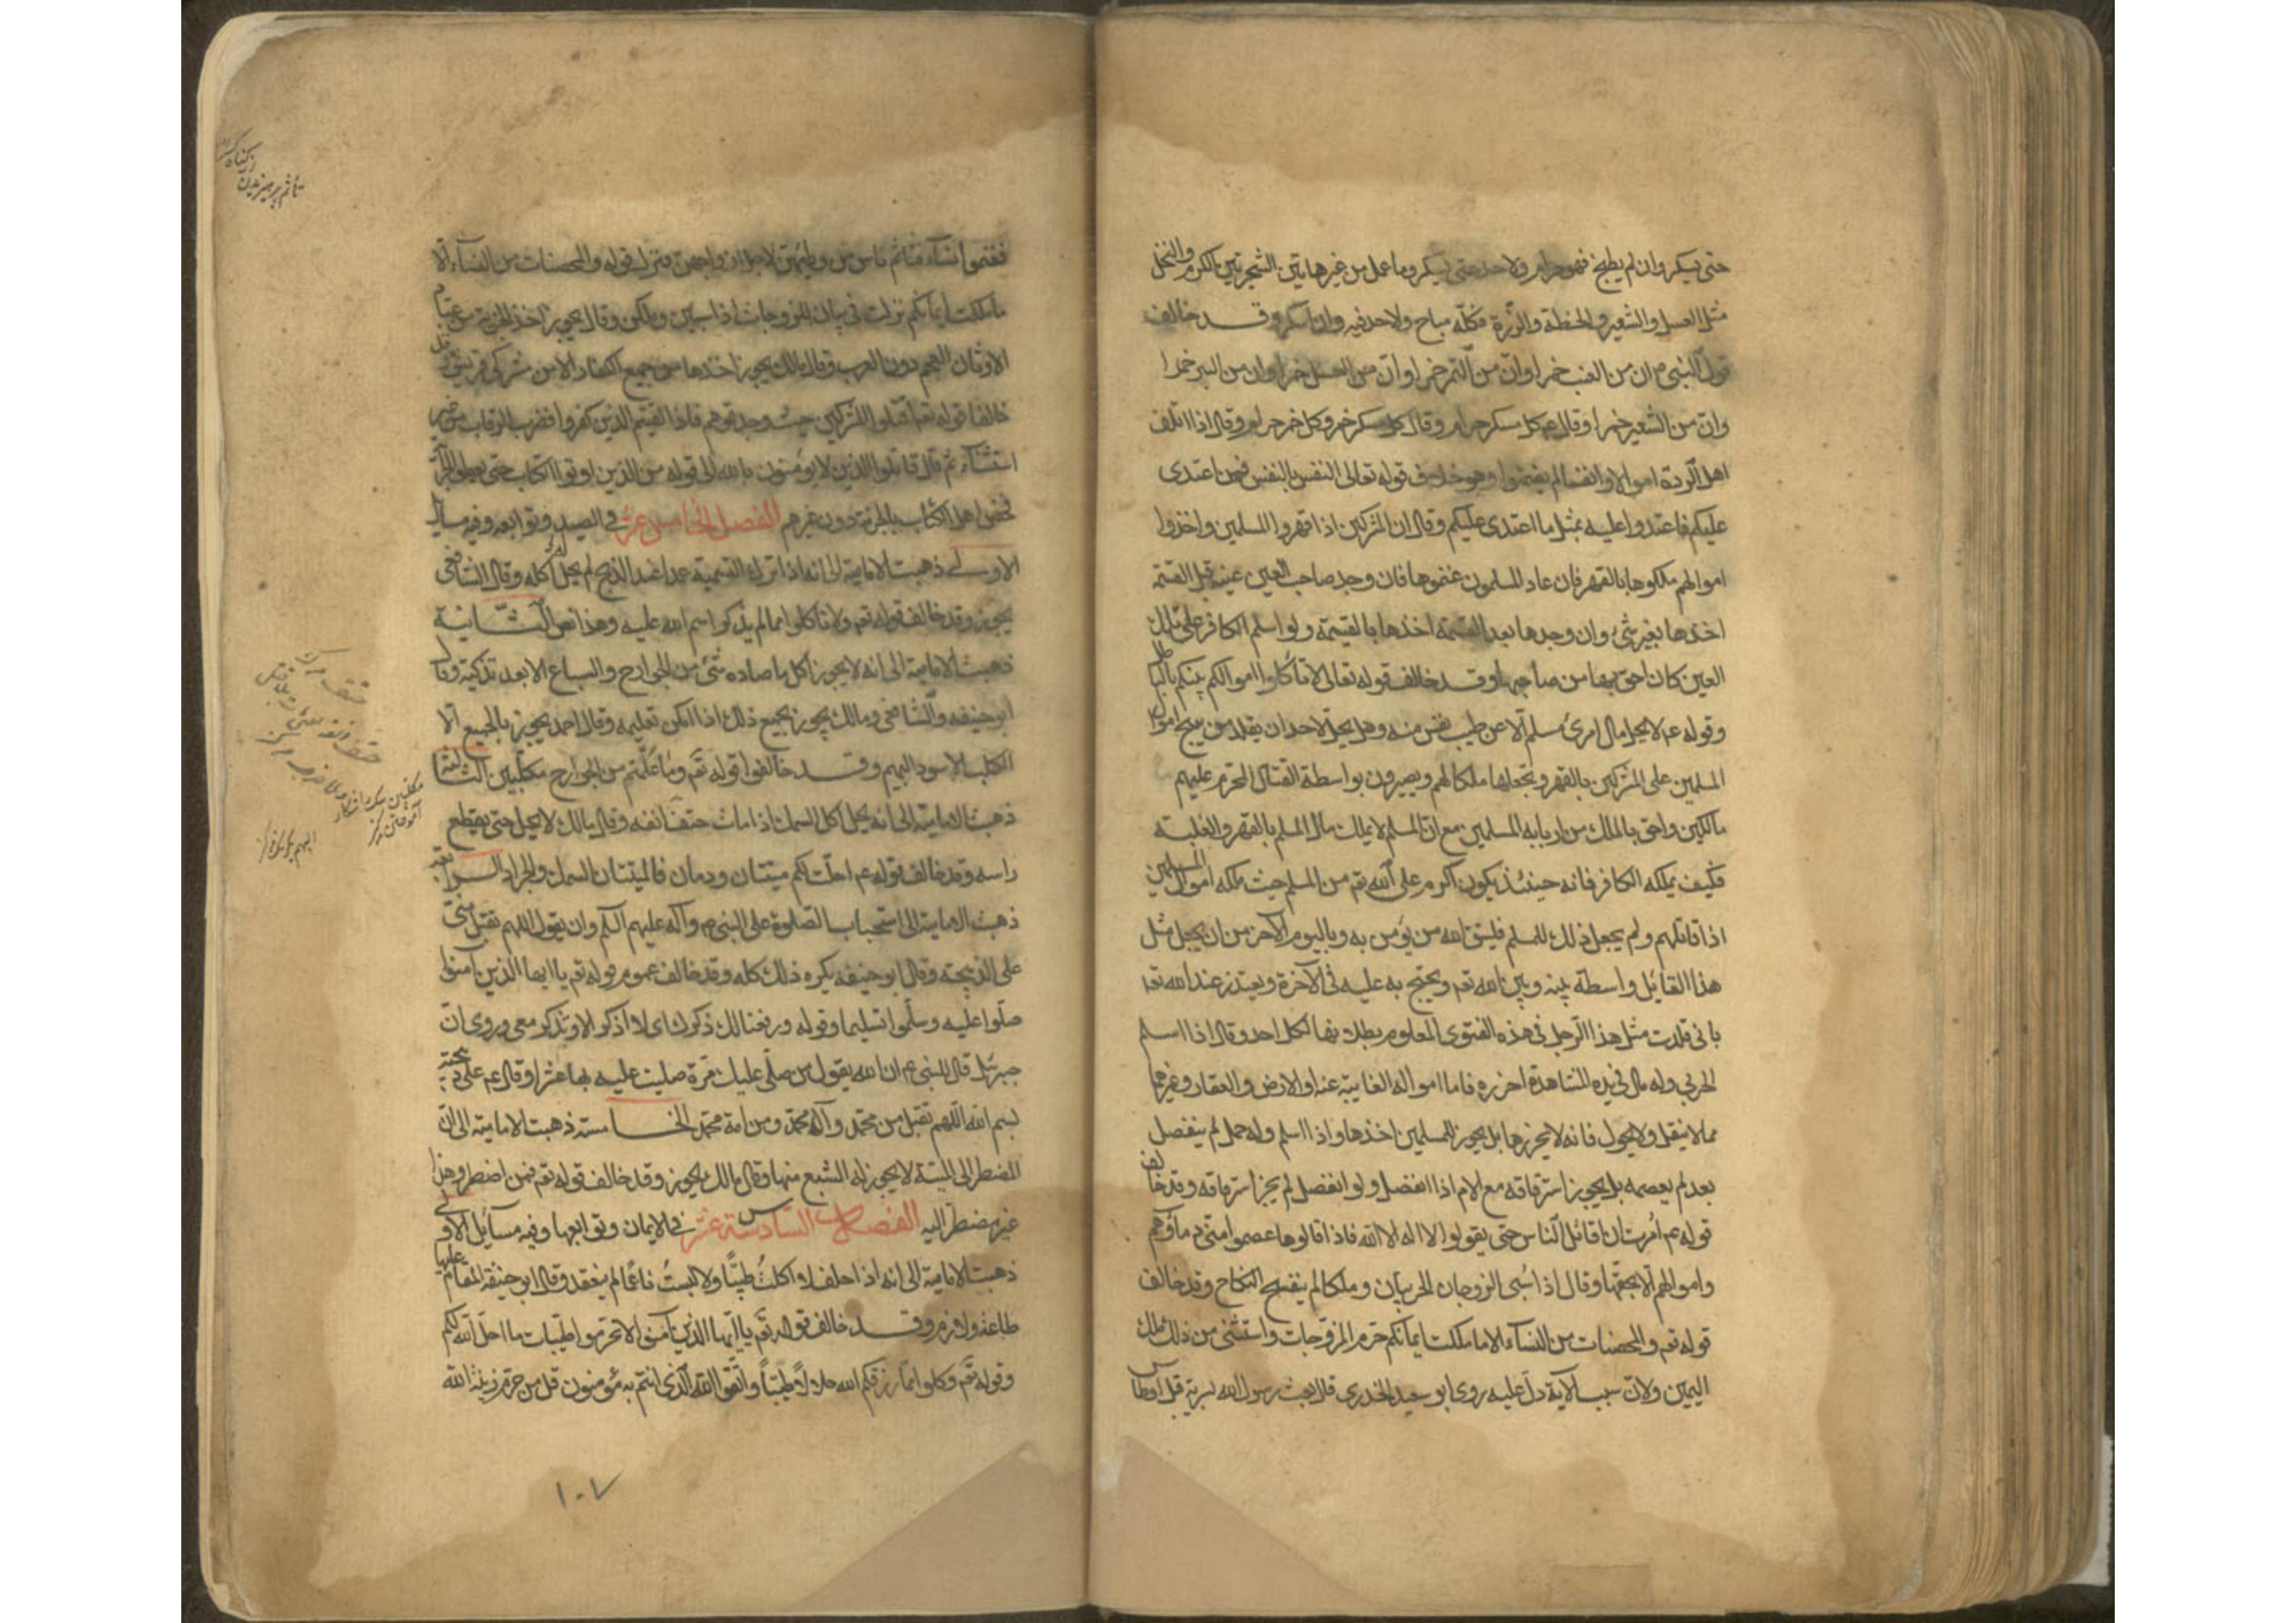 حتى يسكر وان لم يطبخ فهو حرام ولا حد حتى يسكر وما عمل من غير هاتين الشجرتين الكرم والنخل
مثل العسل والشعير والحنطة والذرة فكله مباح ولا حد فيه وان اسكر وقد خالف
قول النبي ص ان من العنب خمرا وان من التمر خمرا وان من العسل خمرا وان من البر خمرا
وان من الشعير خمرا وقال عم كل مسكر حرام وقال كل مسكر خمر وكل خمر حرام وقال اذا اتلف
اهل الردة اموالا وانفسا لم يضمنوا وهو خلاف قوله تعالى النفس بالنفس فمن اعتدى
عليكم فاعتدوا عليه بمثل ما اعتدى عليكم وقال ان المشركين اذا قهروا المسلمين واخذوا
اموالهم ملكوها بالقهر فان عاد المسلمون غنموها فان وجد صاحب العين عينه قبل القسمة
اخذها بغير شئ وان وجدها بعد القسمة اخذها بالقيمة ولو اسلم الكافر على تلك
العين كان احق بها من صاحبها وقد خالف قوله تعالى لا تاكلوا اموالكم بينكم بالباطل
وقوله عم لا يحل مال امرئ مسلم الا عن طيب نفس منه وهل يحل لاحد ان يقلد من يبيح اموال
المسلمين على المشركين بالقهر وتجعلها ملكا لهم ويصيرون بواسطة القتال المحرم عليهم
مالكين واحق بالملك من اربابه المسلمين مع ان المسلم لا يملك مال المسلم بالقهر والغلبة
فكيف يملكه الكافر فانه حينئذ يكون اكرم على الله تع من المسلم حيث ملكه اموال المسلمين
اذا قاتلهم ولم يجعل ذلك للمسلم فليتق الله من يؤمن به وباليوم الآخر من ان يجعل مثل
هذا القائل واسطة بينه وبين الله تع ويحتج به عليه في الآخرة ويعتذر عند الله تع
بانى قلدت مثل هذا الرجل في هذه الفتوى المعلوم بطلانها لكل احد وقال اذا اسلم
الحربي وله مال في يده المشاهدة احرزه فاما امواله الغايبة عنه او الارض والعقار وغيرهما
مما لا ينقل ولا يحول فانه لا يحرزها بل يجوز للمسلمين اخذها واذا اسلم وله حمل لم ينفصل
بعد لم يعصمه بل يجوز استرقاقه مع الام اذا انفصل ولو انفصل لم يجز استرقاقه وقد خالف
قوله عم امرت ان اقاتل الناس حتى يقولوا لا اله الا الله فاذا قالوها عصموا منى دماؤهم
واموالهم الا بحقها وقال اذا سبى الزوجان الحربيان وملكا لم ينفسخ النكاح وقد خالف
قوله تع والمحصنات من النساء الا ما ملكت ايمانكم حرم المزوجات واستثنى من ذلك ملك
اليمين ولان سبب الآية دل عليه روى ابو سعيد الخدري قال بعث رسول الله سرية قبل اوطاس
فغنموا نساء فتاثم ناس من وطيهن لاجل ازواجهن فنزل قوله والمحصنات من النساء الا
ما ملكت ايمانكم نزلت في بيان المزوجات اذا سبين وملكن وقال يجوز اخذ الجزية من عباد
الاوثان العجم دون العرب وقال مالك يجوز اخذها من جميع الكفار الا من مشركي قريش وقد
خالفا قوله تع اقتلوا المشركين حيث وجدتموهم فاذا لقيتم الذين كفروا فضرب الرقاب من غير
استثناء ثم قال قاتلوا الذين لا يؤمنون بالله الى قوله من الذين اوتوا الكتاب حتى يعطوا الجزية
فخص اهل الكتاب بالجزية دون غيرهم الفصل الخامس عشر في الصيد وتوابعه وفيه مسائل
الاولى ذهبت الامامية الى انه اذا ترك التسمية عمدا عند الذبح لم يحل اكله وقال الشافعي
يجوز وقد خالف قوله تع ولا تاكلوا مما لم يذكر اسم الله عليه وهذا نص الثانية
ذهبت الامامية الى انه لا يجوز اكل ما صاده شئ من الجوارح والسباع الا بعد تذكيته وقال
ابو حنيفه والشافعي ومالك يجوز بجميع ذلك اذا امكن تعليمه وقال احمد يجوز بالجميع الا
الكلب الاسود البهيم وقد خالفوا قوله تع وما علمتم من الجوارح مكلبين الثالثة
ذهبت الامامية الى انه يحل اكل السمك اذا مات حتف انفه وقال مالك لا يحل حتى يقطع
راسه وقد خالف قوله عم احلت لكم ميتتان ودمان فالميتتان السمك والجراد الرابعة
ذهبت الامامية الى استحباب الصلوة على النبي ص وآله عليهم السلم وان يقول اللهم تقبل منى
على الذبيحة وقال ابو حنيفه يكره ذلك كله وقد خالف عموم قوله تع يا ايها الذين آمنوا
صلوا عليه وسلموا تسليما وقوله ورفعنا لك ذكرك اى لا اذكر الا وتذكر معى وروى ان
جبرئيل قال للنبي ص ان الله يقول من صلى عليك مرة صليت عليه بها عشرا وقال عم على ذبيحته
بسم الله اللهم تقبل من محمد وآل محمد ومن امة محمد الخامسة ذهبت الامامية الى ان
المضطر الى الميتة لا يجوز له الشبع منها وقال مالك يجوز وقد خالف قوله تع فمن اضطر وهذا
غير مضطر اليه الفصل السادسة عشر في الايمان وتوابعها وفيه مسائل الاولى
ذهبت الامامية الى انه اذا حلف لا اكلت طيبا ولا لبست ناعما لم ينعقد وقال ابو حنيفة المقام عليها
طاعة ولازم وقد خالف قوله تع يا ايها الذين آمنوا لا تحرموا طيبات ما احل الله لكم
وقوله تع وكلوا مما رزقكم الله حلالا طيبا واتقوا الله الذي انتم به مؤمنون قل من حرم زينة الله
تأثم پرهیزیدن
از گناه
١٠٧